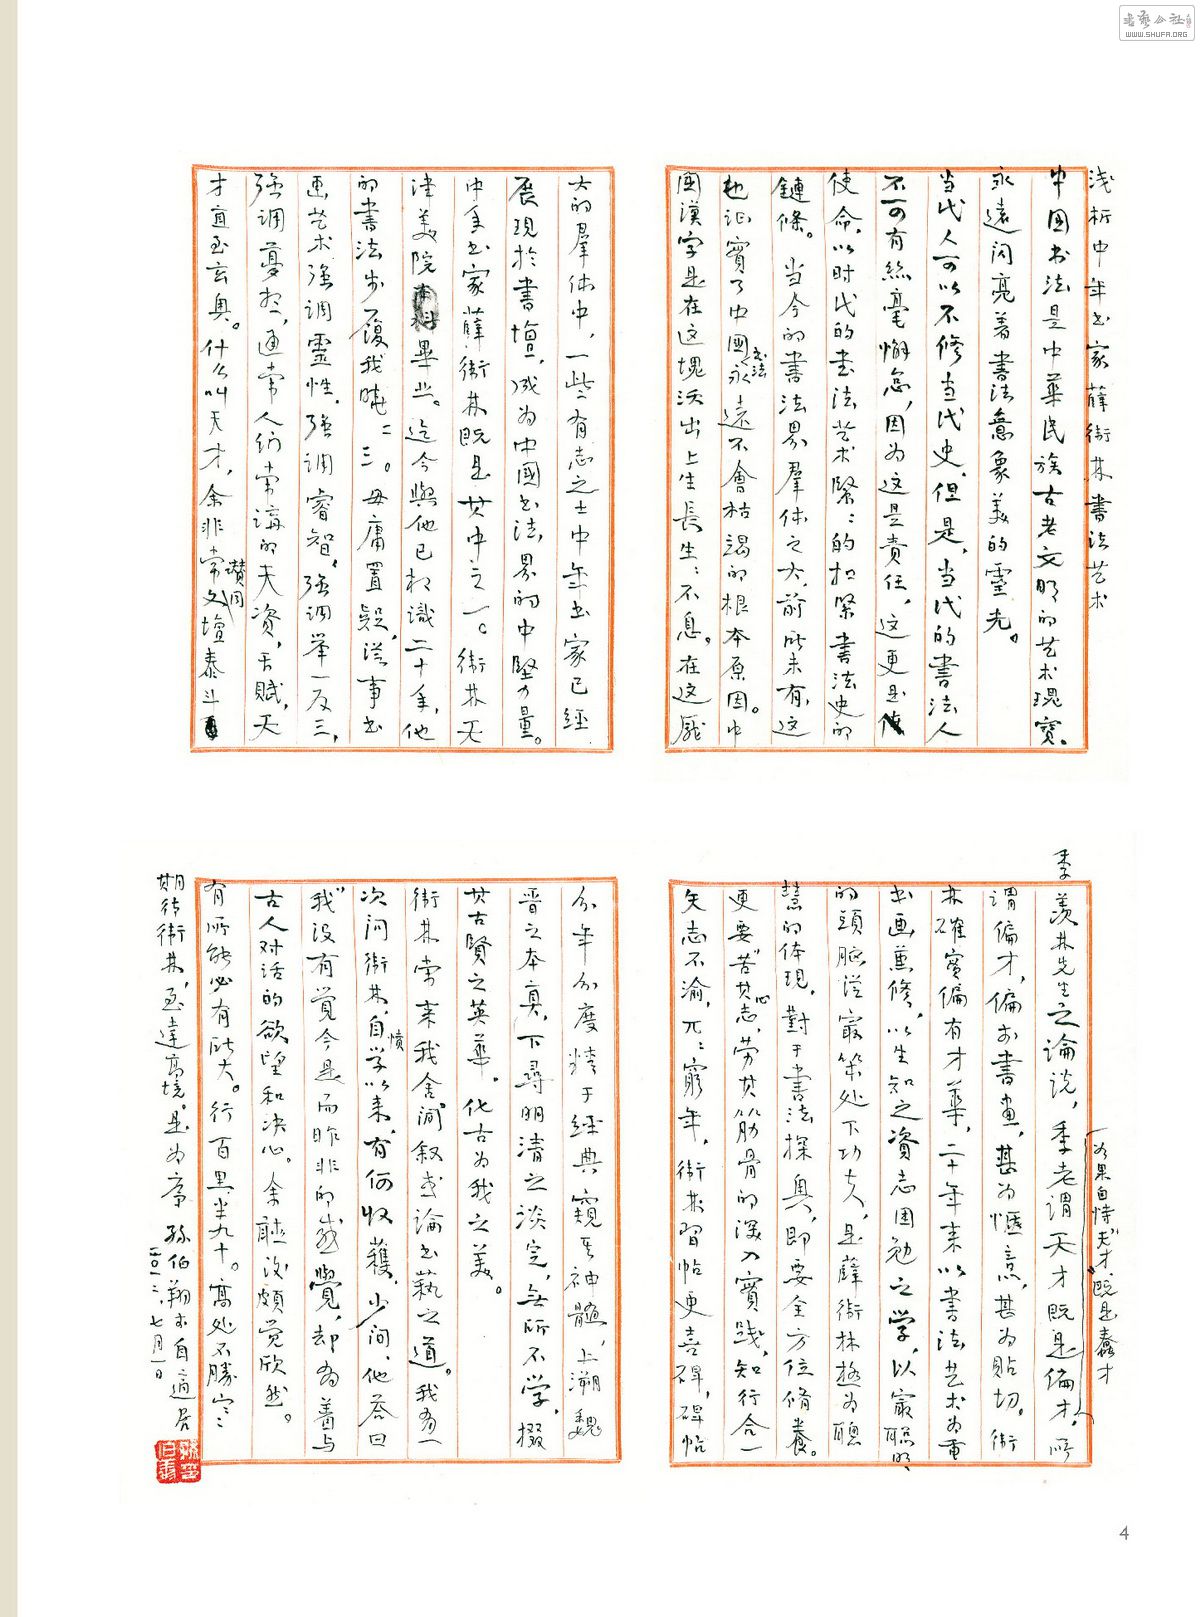 浅析中年书家薛衔林書法艺术
中国书法是中华民族古老文明的艺术瑰寶。
永遠闪亮着書法意象美的靈光。
当代人可以不修当代史,但是,当代的書法人
不可有絲毫懈怠,因为这是责任,这更是
使命,以时代的書法艺术緊:的扣紧書法史的
鏈條。当今的書法界羣体之大,前所未有,这
也証實了中國書法永遠不會枯竭的根本原因。中
國漢字是在这塊沃出上生長生:不息。在这厐
大的羣体中,一些有志之士中年书家已经
展現於書壇,成为中國书法界的中堅力量。
中年书家薛衔林既是其中之一。衔林天
津美院本科畢业。迄今與他已相識二十年,他
的書法步履我曉:三。毋庸置疑,從事书
画艺术强调靈性.强调睿智,强调举一反三,
强调夢想,通常人们常講的天资,天赋,天
才直至玄奥。什么叫天才,余非常讃同文壇泰斗
季羡林先生之論说,季老谓天才既是偏才,所
如果自恃"天才"既是蠢才
谓偏才,偏于書畫,甚为愜意,甚为貼切。衔
林確實偏有才華,二十年来以書法艺术为重
书画兼修,以生知之資志困勉之学,以最聪明
的頭腦從最笨处下功夫,是薛衔林極为聰
慧的体現,對于書法探奥,即要全方位修養。
更要"苦其心志,劳其筋骨的深入實践,知行合一
矢志不渝,兀:窮年,衔林習帖更喜碑,碑帖
分年分度精于经典窺其神髓,上溯魏
晋之本真,下尋明清之淡定,無所不学,掇
其古賢之英華.化古为我之美。
衔林常来我舍间叙艺論书藝之道。我有一
次问衔林,自學以来,有何收獲,少间,他答曰
我"没有覚今是而昨非的感覺,却有着与
古人对话的欲望和决心。余聽後頗觉欣然。
有所能必有所大。行百里半九十。高处不勝寒:
期待衔林,至達高境。是为序 孫伯翔于自適居
二〇一三、七月一日
4
WWW.SHUFA.ORG